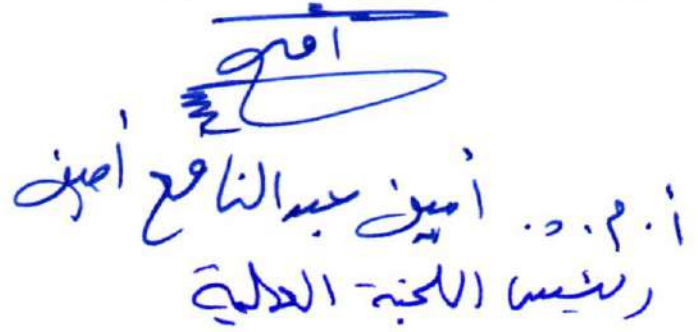 أ.م.د. أمين عبدالنافع أمين
رئيس اللجنة العلمية